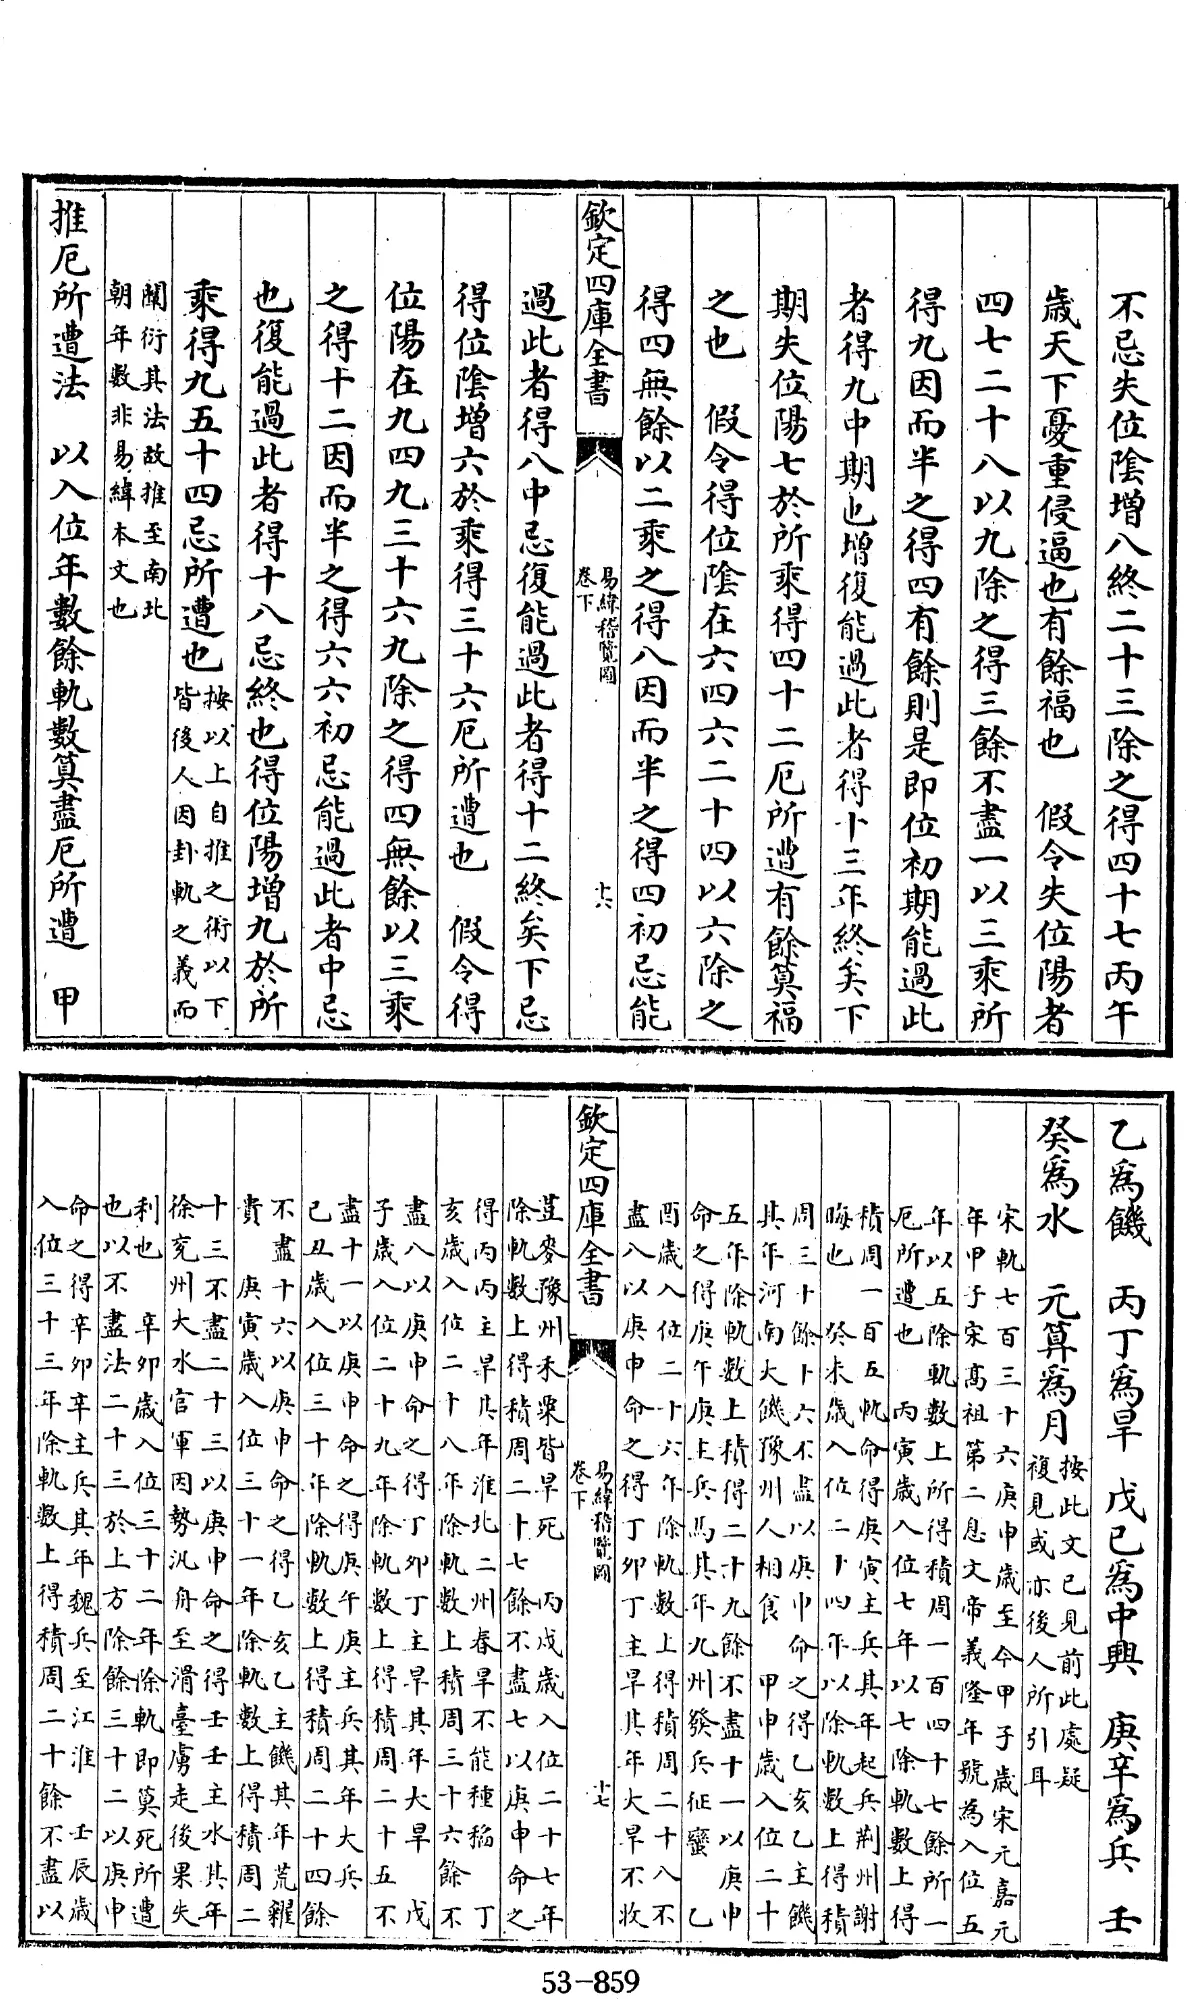 不忌失位陰增八終二十三除之得四十七丙午
歲天下憂重侵逼也有餘福也　假令失位陽者
四七二十八以九除之得三餘不盡一以三乘所
得九因而半之得四有餘則是即位初期能過此
者得九中期也增復能過此者得十三年終矣下
期失位陽七於所乘得四十二厄所遭有餘算福
之也　假令得位陰在六四六二十四以六除之
得四無餘以二乘之得八因而半之得四初忌能
欽定四庫全書
易緯稽覽圖
卷下
十六
過此者得八中忌復能過此者得十二終矣下忌
得位陰增六於乘得三十六厄所遭也　假令得
位陽在九四九三十六九除之得四無餘以三乘
之得十二因而半之得六六初忌能過此者中忌
也復能過此者得十八忌終也得位陽增九於所
乘得九五十四忌所遭也
按以上自推之術以下
皆後人因卦軌之義而
闡衍其法故推至南北
朝年數非易緯本文也
推厄所遭法　以入位年數餘軌數算盡厄所遭　甲
乙為饑　丙丁為旱　戊已為中興　庚辛為兵　壬
癸為水　元算為月
按此文已見前此處疑
複見或亦後人所引耳
宋軌七百三十六庚申歲至今甲子歲宋元嘉元
年甲子宋高祖第二息文帝義隆年號為入位五
年以五除軌數上所得積周一百四十七餘所一
厄所遭也　丙寅歲入位七年以七除軌數上得
積周一百五軌命得庚寅主兵其年起兵荆州謝
晦也　癸未歲入位二十四年以除軌數上得積
周三十餘十六不盡以庚申命之得乙亥乙主饑
其年河南大饑豫州人相食　甲申歲入位二十
五年除軌數上積得二十九餘不盡十一以庚申
命之得庚午庚主兵馬其年九州發兵征蠻　乙
酉歲入位二十六年除軌數上得積周二十八不
盡八以庚申命之得丁卯丁主旱其年大旱不收
欽定四庫全書
易緯稽覽圖
卷下
十七
荳麥豫州禾粟皆旱死　丙戌歲入位二十七年
除軌數上得積周二十七餘不盡七以庚申命之
得丙丙主旱其年淮北二州春旱不能種稻　丁
亥歲入位二十八年除軌數上積周三十六餘不
盡八以庚申命之得丁卯丁主旱其年大旱　戊
子歲入位二十九年除軌數上得積周二十五不
盡十一以庚申命之得庚午庚主兵其年大兵
已丑歲入位三十年除軌數上得積周二十四餘
不盡十六以庚申命之得乙亥乙主饑其年荒糴
貴　庚寅歲入位三十一年除軌數上得積周二
十三不盡二十三以庚申命之得壬壬主水其年
徐兗州大水官軍因勢汎舟至滑臺虜走後果失
利也　辛卯歲入位三十二年除軌即算死所遭
也以不盡法二十三於上方除餘三十二以庚申
命之得辛卯辛主兵其年魏兵至江淮　壬辰歲
入位三十三年除軌數上得積周二十餘不盡以
53-859